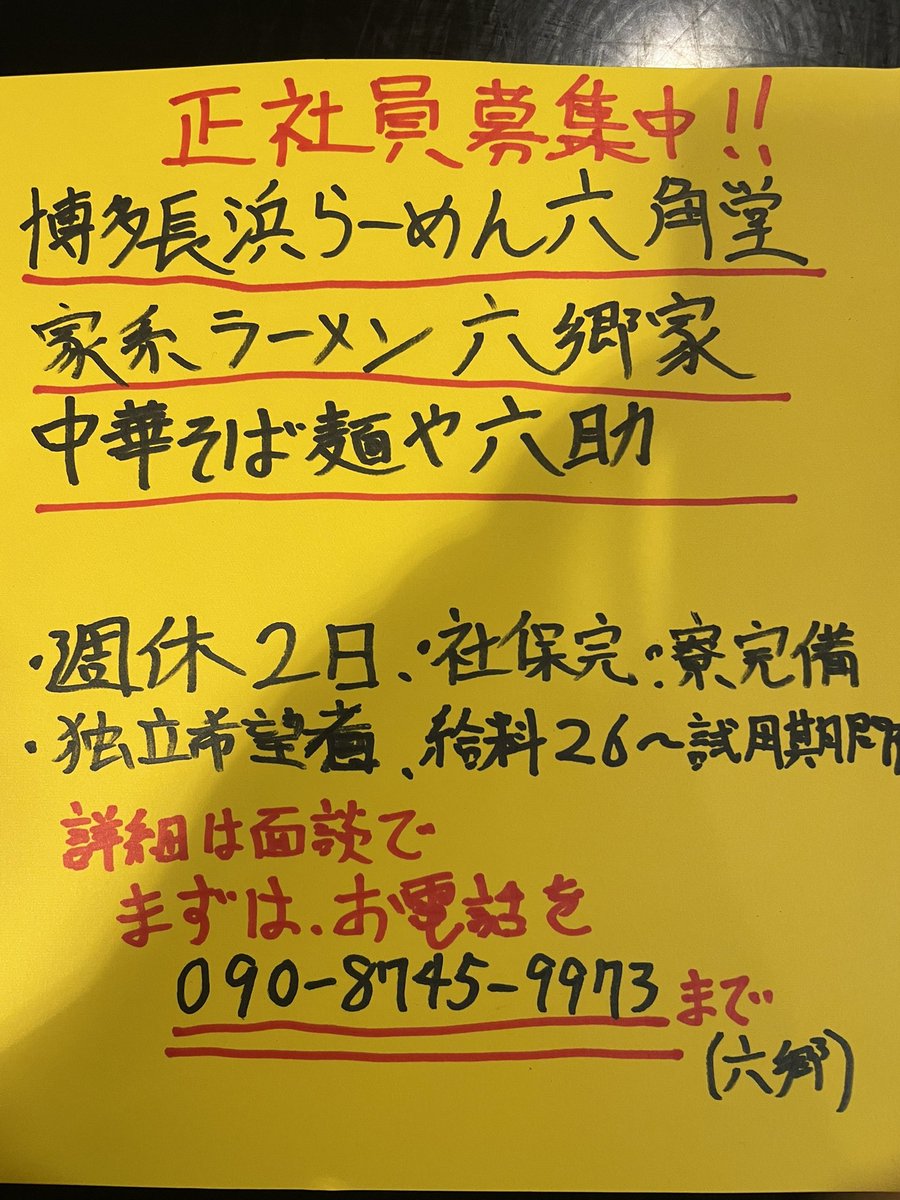 正社員募集中!!
博多長浜らーめん六角堂
家系ラーメン六郷家
中華そば麺や六助
・週休2日、・社保完・寮完備
・独立希望者、給料26〜試用期間
詳細は面談で
まずは、お電話を
090-8745-9973まで
(六郷)